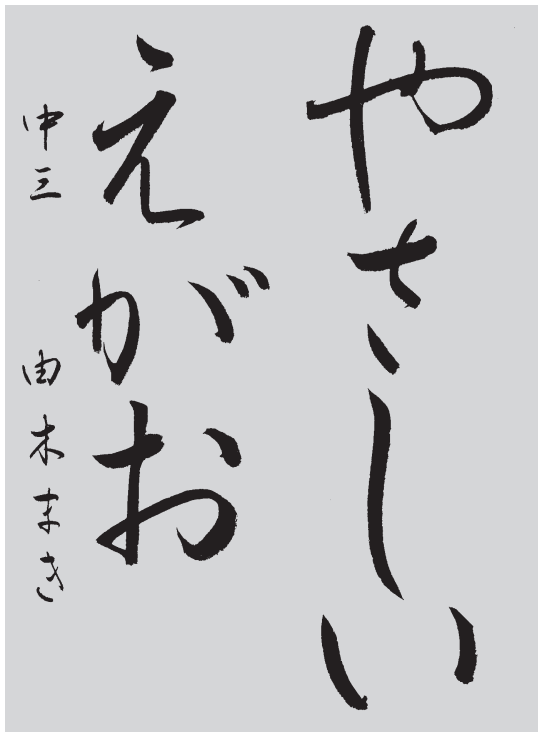 やさしい
えがお
中三 由木まき